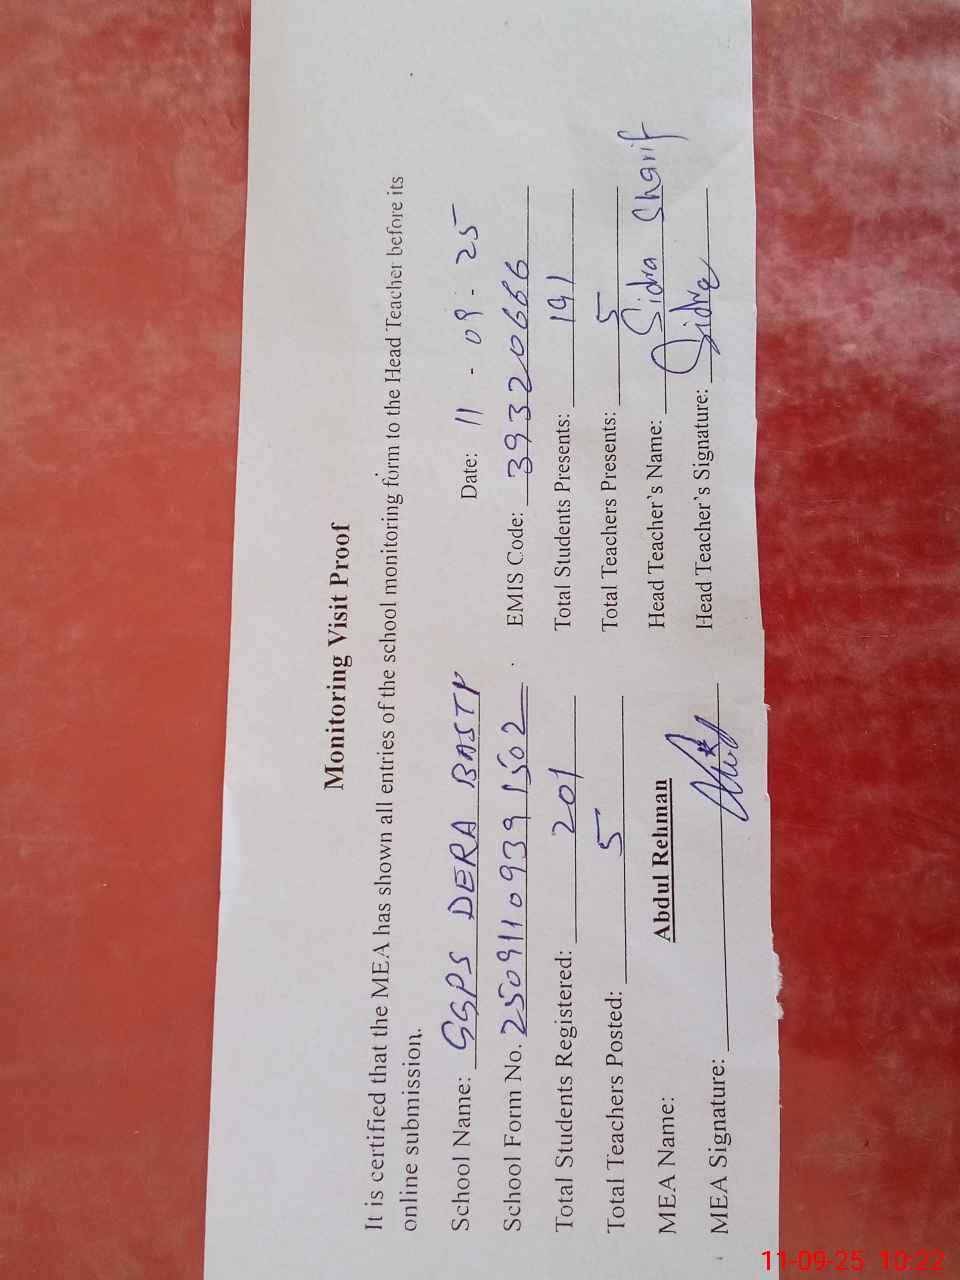 Monitoring Visit Proof
It is certified that the MEA has shown all entries of the school monitoring form to the Head Teacher before its
online submission.
School Name: GGPS DERA BASTI Date: 11 - 09 - 25
School Form No. 25091109391502 EMIS Code: 39320666
Total Students Registered: 201 Total Students Presents: 191
Total Teachers Posted: 5 Total Teachers Presents: 5
MEA Name: Abdul Rehman Head Teacher's Name: Sidra Sharif
MEA Signature: Head Teacher's Signature: Sidra
11-09-25 10:22